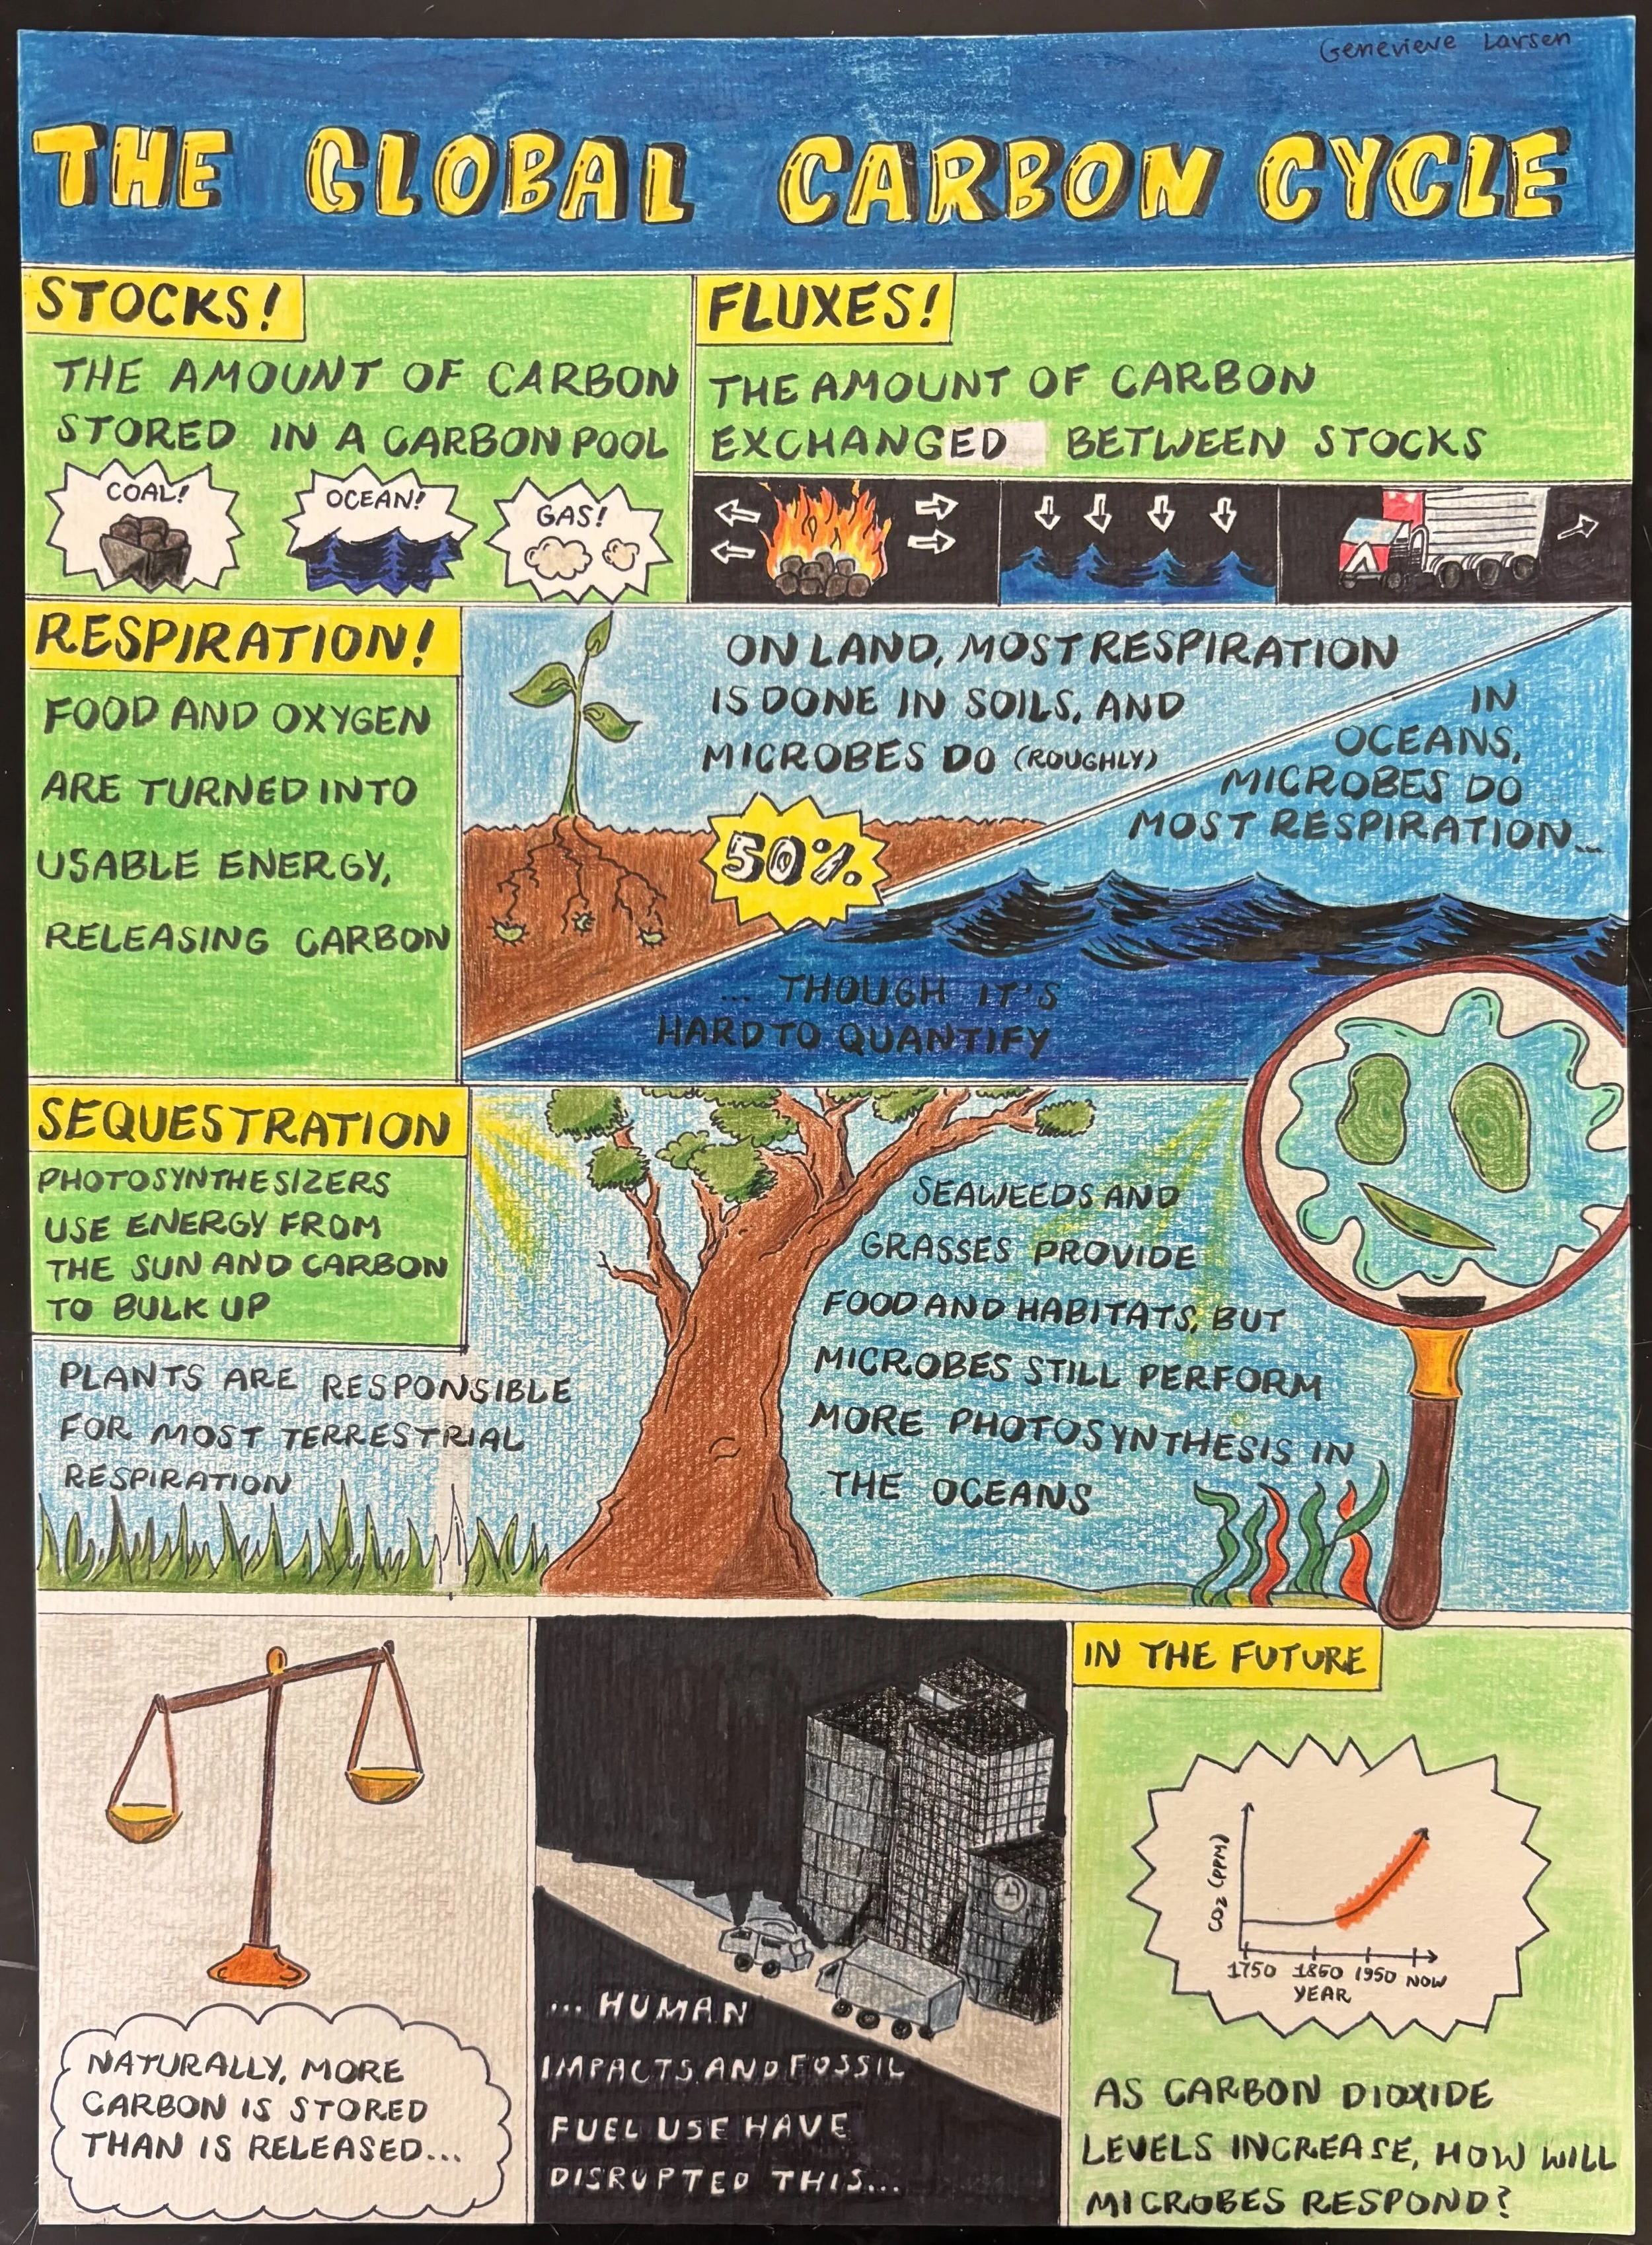 Genevieve Larsen
THE GLOBAL CARBON CYCLE
STOCKS!
THE AMOUNT OF CARBON
STORED IN A CARBON POOL
COAL!
OCEAN!
GAS!
FLUXES!
THE AMOUNT OF CARBON
EXCHANGED BETWEEN STOCKS
RESPIRATION!
FOOD AND OXYGEN
ARE TURNED INTO
USABLE ENERGY,
RELEASING CARBON
ON LAND, MOST RESPIRATION
IS DONE IN SOILS, AND
MICROBES DO (ROUGHLY)
50%
IN
OCEANS,
MICROBES DO
MOST RESPIRATION...
... THOUGH IT'S
HARD TO QUANTIFY
SEQUESTRATION
PHOTOSYNTHESIZERS
USE ENERGY FROM
THE SUN AND CARBON
TO BULK UP
PLANTS ARE RESPONSIBLE
FOR MOST TERRESTRIAL
RESPIRATION
SEAWEEDS AND
GRASSES PROVIDE
FOOD AND HABITATS, BUT
MICROBES STILL PERFORM
MORE PHOTOSYNTHESIS IN
THE OCEANS
NATURALLY, MORE
CARBON IS STORED
THAN IS RELEASED...
... HUMAN
IMPACTS AND FOSSIL
FUEL USE HAVE
DISRUPTED THIS...
IN THE FUTURE
CO2 (PPM)
1750 1850 1950 NOW
YEAR
AS CARBON DIOXIDE
LEVELS INCREASE, HOW WILL
MICROBES RESPOND?